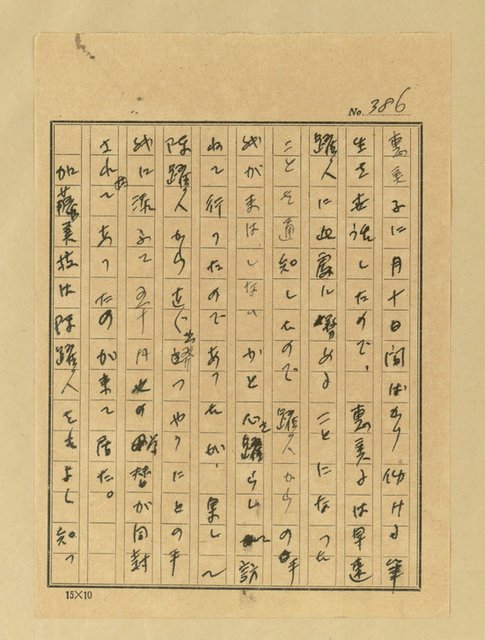 No. 386
恵美子に月十日間ばかり働ける筆
生を世話したので、恵美子は早速
躍人に近露に勤めることになつた
ことを通知したので躍人からの手
紙がまはしないかと心を躍らして訪
ねて行つたのであつたが、果して
陳躍人から直ぐ出かけるやうにとの手
紙に添えて五十円の為替が同封
されてあつたのが来て居た。
加藤美枝は陳躍人をもよく知つ
15×10